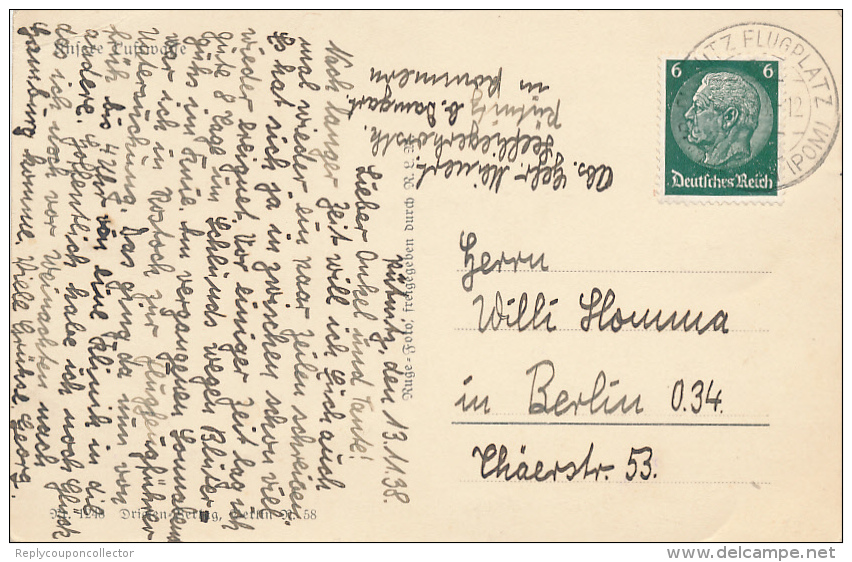 Unsere Luftwaffe
Pütnitz, den 13.11.38.
Lieber Onkel und Tante!
Nach langer Zeit will ich Euch auch
mal wieder ein paar Zeilen schreiben.
Es hat sich ja inzwischen schon viel
wieder ereignet. Vor einiger Zeit lag ich
gute 8 Tage im
wegen Bluter-
guß im Knie. Am vergangenen Sonnabend
war ich in Rostock zur Flugzeugführer
Untersuchung. Das ging da nun von
früh bis 4 Uhr von eine Klinik in die
andere. Hoffentlich habe ich noch Glück
das ich noch vor Weinachten nach
Hamburg komme. Viele Grüße Georg.
Nr. 1248
Berlin
58
Ruge-Foto, freigegeben durch R.L.M.
Abs. Gefr. Meinert
Seefliegerhorstk.
Pütnitz b. Damgart.
in Pommern
PÜTNITZ FLUGPLATZ
(POM)
12
6 6
Deutsches Reich
Herrn
Willi Homma
in Berlin O.34.
Thaerstr. 53.
Replycouponcollector
delcampe.net